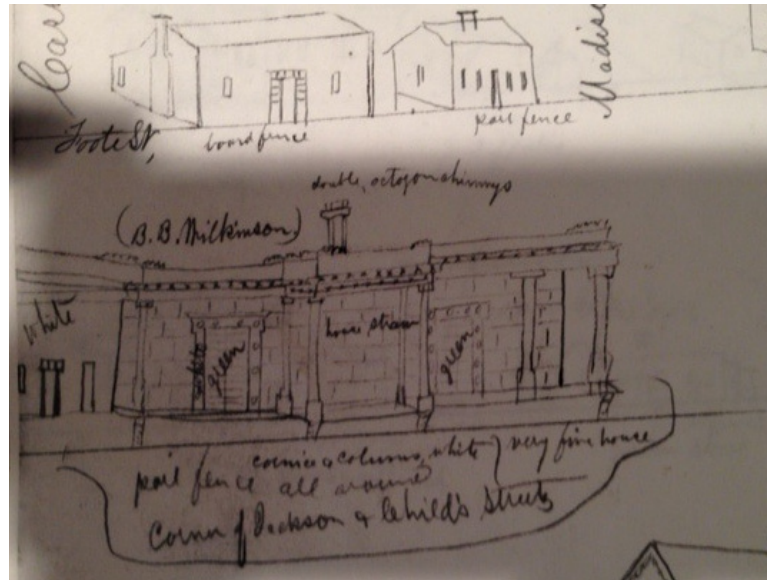 Foote St,
board fence
pail fence
double, octogon chimnys
(B.B. Wilkinson)
white
white
green
house straw
green
cornice & columns, white } very fine house
pail fence all around
Corner of Jackson & Child's Streets